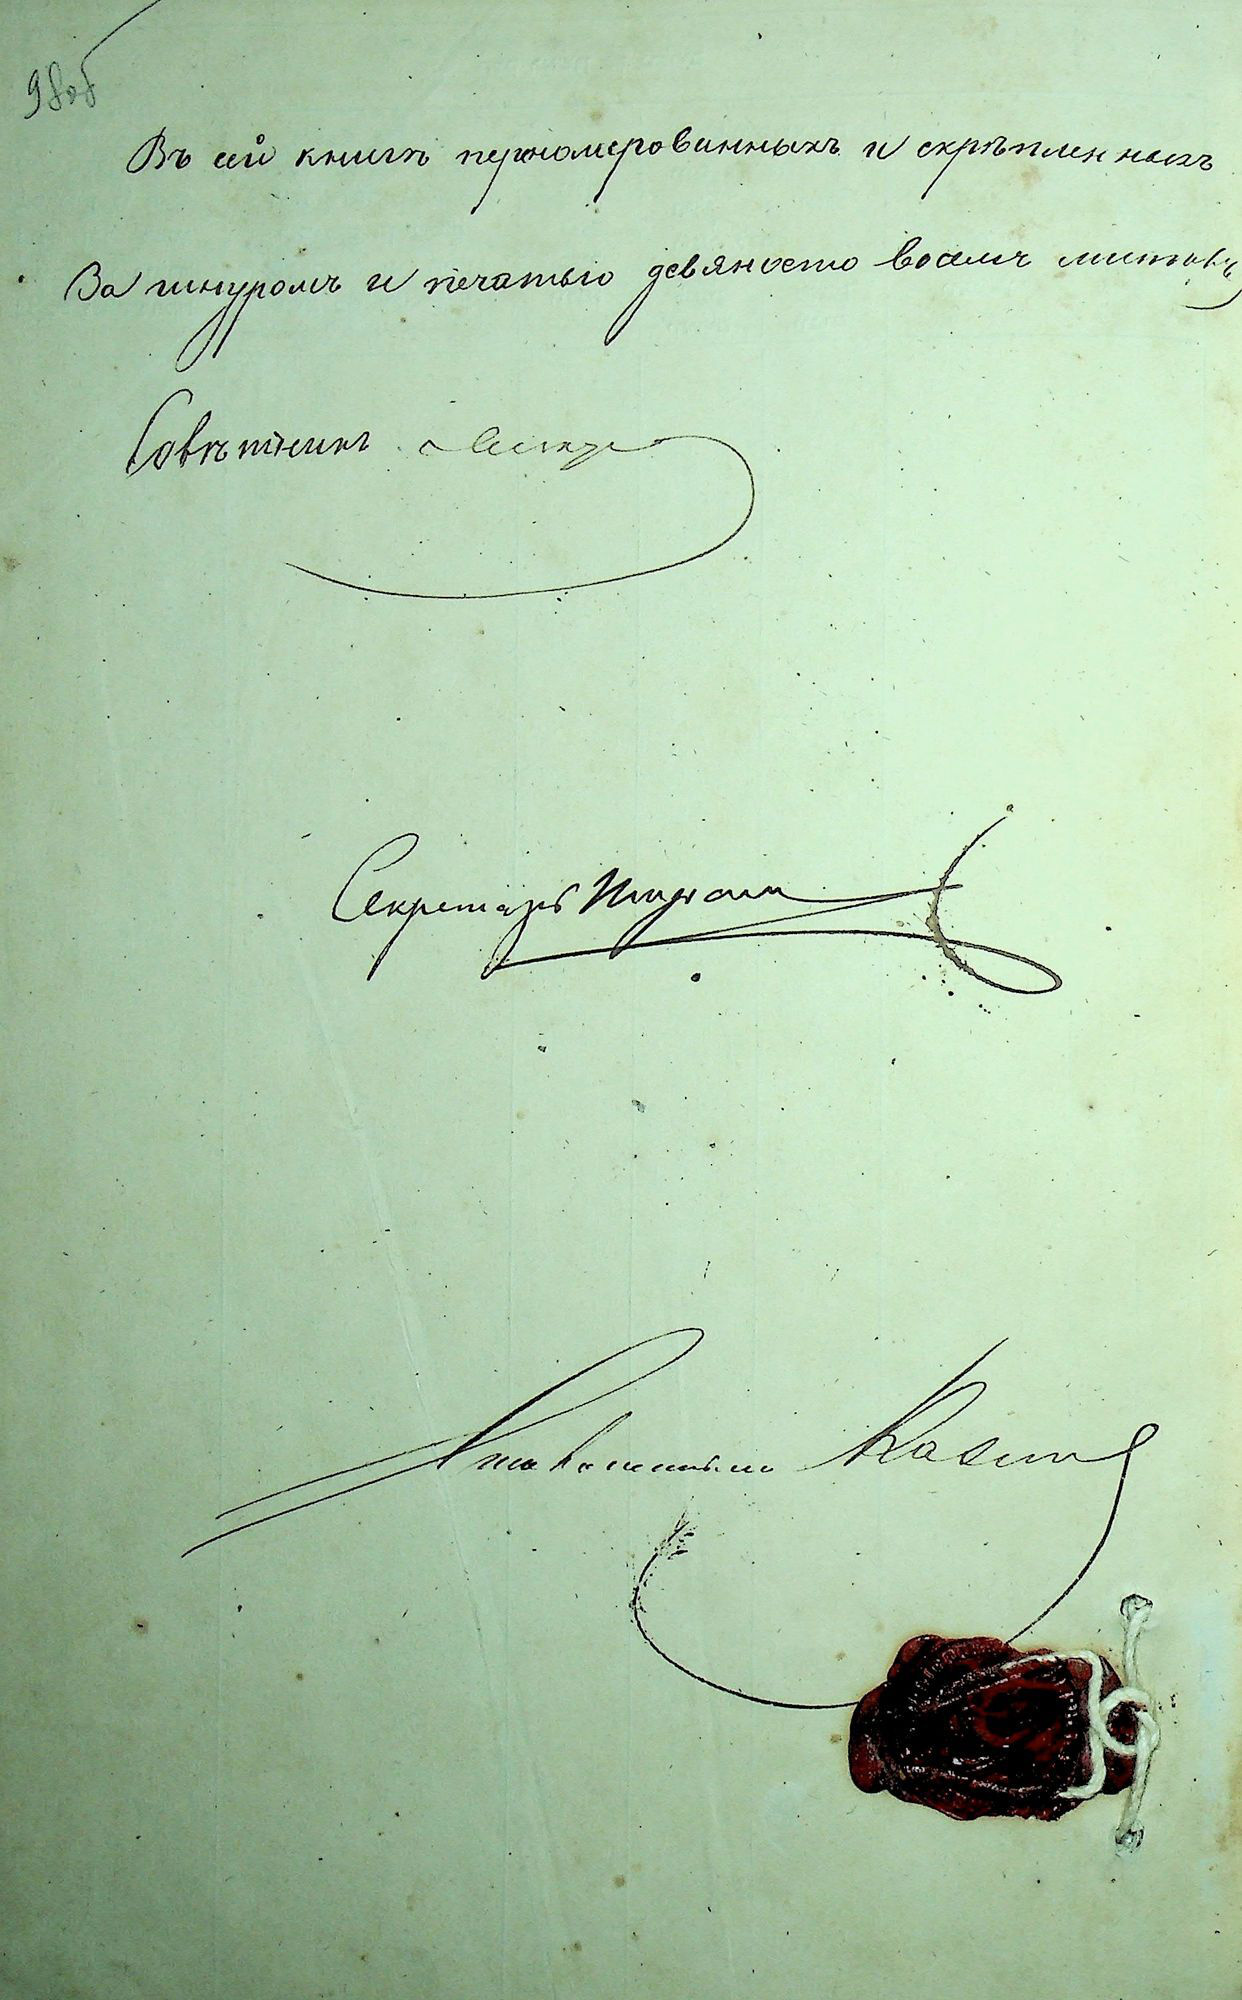 98об
Въ сей книгѣ перномерованныхъ и скрѣпленныхъ
За шнуромъ и печатью девяносто восемь листовъ
Совѣтникъ
Секретарь